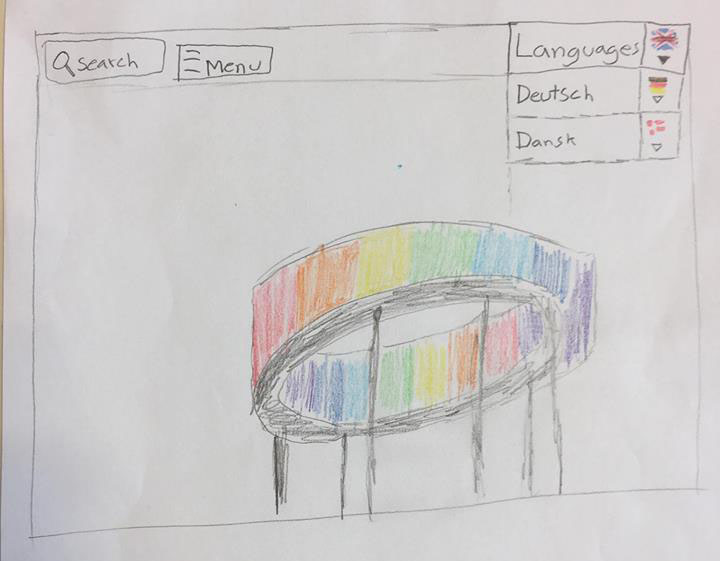 search
Menu
Languages
Deutsch
Dansk